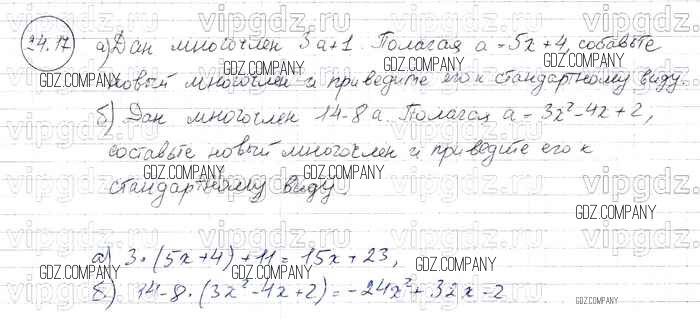 24.17 а) Дан многочлен 3a+1. Полагая a = 5x+4, составьте
новый многочлен и приведите его к стандартному виду.
б) Дан многочлен 14-8a. Полагая a = 3x²-4x+2,
составьте новый многочлен и приведите его к
стандартному виду.
а) 3·(5x+4)+11 = 15x+23,
б) 14-8·(3x²-4x+2) = -24x²+32x-2